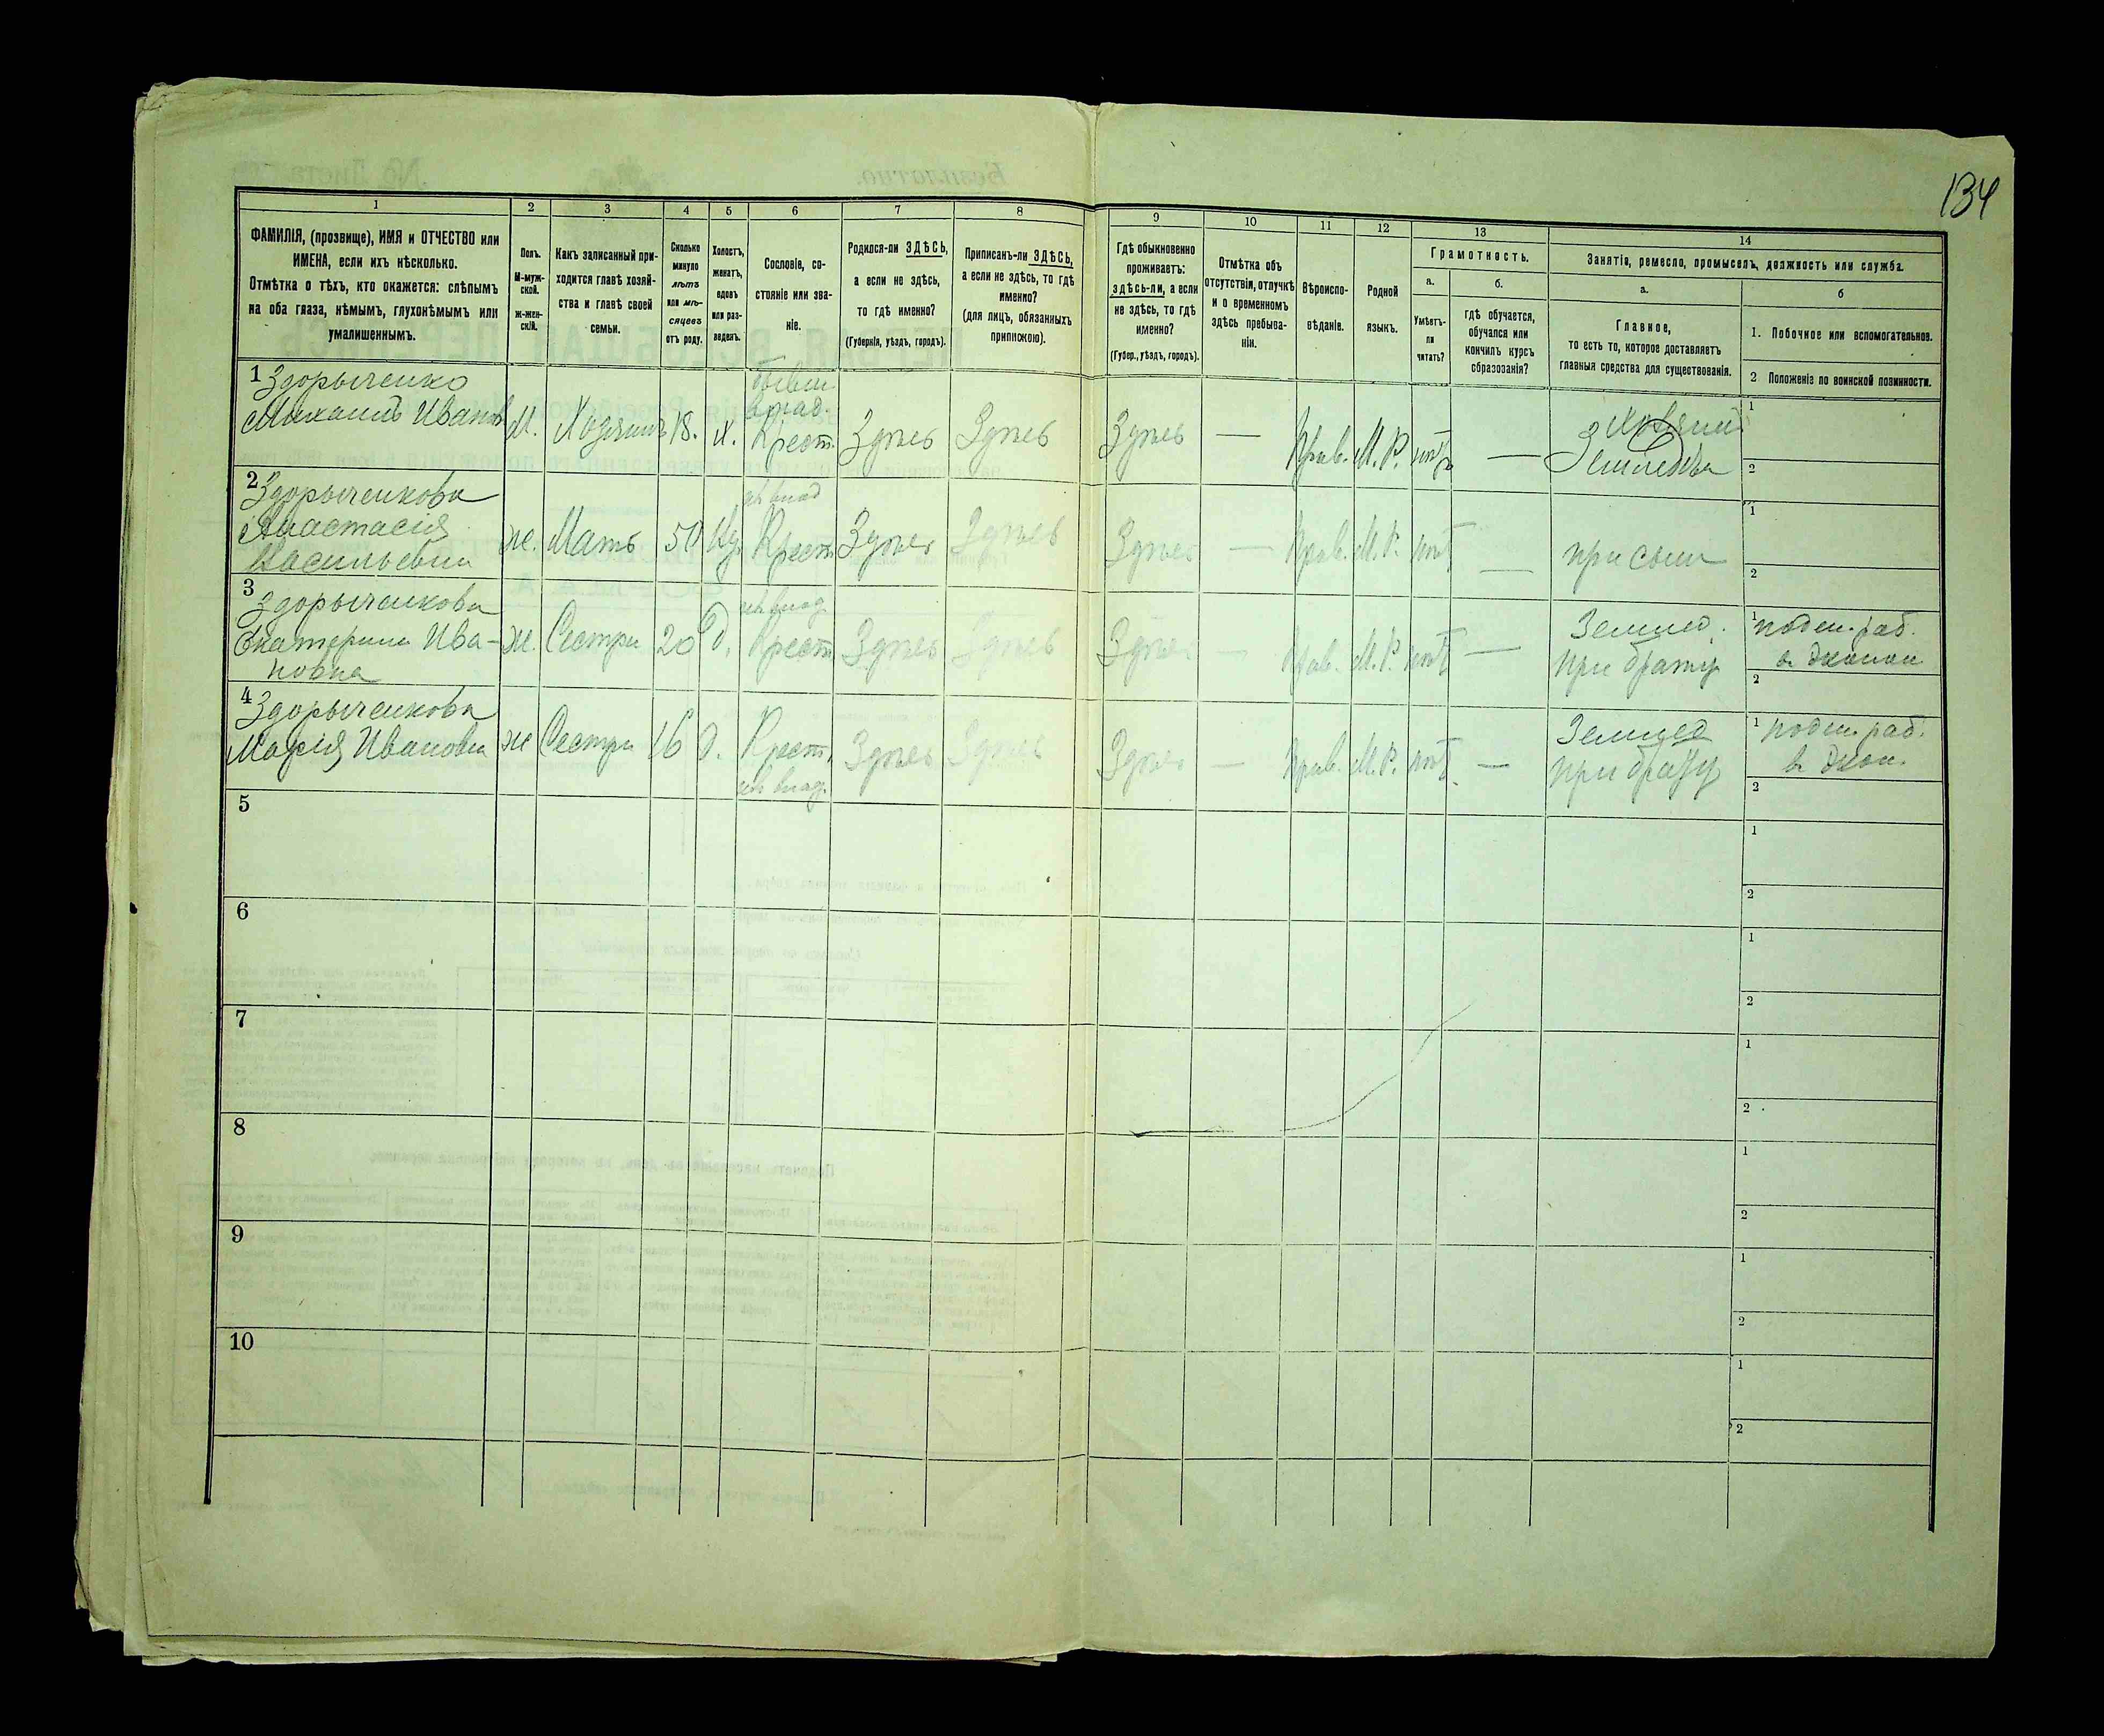 134
1 2 3 4 5 6 7 8 9 10 11 12 13 14
ФАМИЛІЯ, (прозвище), ИМЯ и ОТЧЕСТВО или
ИМЕНА, если ихъ нѣсколько.
Отмѣтка о тѣхъ, кто окажется: слѣпымъ
на оба глаза, нѣмымъ, глухонѣмымъ или
умалишеннымъ.
Полъ.
М-муж-
ской.
ж-жен-
скій.
Какъ записанный при-
ходится главѣ хозяй-
ства и главѣ своей
семьи.
Сколько
минуло
лѣтъ
или мѣ-
сяцевъ
отъ роду.
Холостъ,
женатъ,
вдовъ
или раз-
веденъ.
Сословіе, со-
стояніе или зва-
ніе.
Родился-ли ЗДѢСЬ,
а если не здѣсь,
то гдѣ именно?
(Губернія, уѣздъ, городъ).
Приписанъ-ли ЗДѢСЬ,
а если не здѣсь, то гдѣ
именно?
(для лицъ, обязанныхъ
припискою).
Гдѣ обыкновенно
проживаетъ:
здѣсь-ли, а если
не здѣсь, то гдѣ
именно?
(Губер., уѣздъ, городъ).
Отмѣтка объ
отсутствіи, отлучкѣ
и о временномъ
здѣсь пребыва-
ніи.
Вѣроиспо-
вѣданіе.
Родной
языкъ.
Грамотность.
а.
Умѣетъ-
ли
читать?
б.
гдѣ обучается,
обучался или
кончилъ курсъ
образованія?
Занятіе, ремесло, промыселъ, должность или служба.
а.
Главное,
то есть то, которое доставляетъ
главныя средства для существованія.
б
1. Побочное или вспомогательное.
2 Положеніе по воинской повинности.
1 Здорыченко
Михаилъ Иванов
М. Хозяинъ 18. Х.
бывш
влад.
Крест.
Здѣсь Здѣсь Здѣсь — Прав. М. Р. нѣтъ —
Хозяинъ
Земледѣл
1
2
2 Здорыченкова
Анастасія
Васильевна
ж. Мать 50 Вд.
Крест.
Здѣсь Здѣсь Здѣсь — Прав. М. Р. нѣт —
при сынѣ
1
2
3 Здорыченкова
Екатерина Ива-
новна
ж. Сестра 20 д.
Крест.
Здѣсь Здѣсь Здѣсь — Прав. М. Р. нѣт —
Землед.
при брату
1 поден. раб.
в экон
2
4 Здорыченкова
Марія Ивановна
ж Сестра 16 д. Крест.
Здѣсь Здѣсь Здѣсь — Прав. М. Р. нѣт —
Землед
при брату
1 поден. раб.
в экон.
2
5
1
2
6
1
2
7
1
2
8
1
2
9
1
2
10
1
2